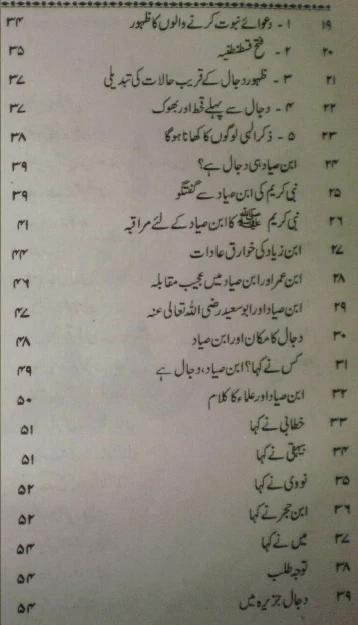 ۱۹ ۱ - دعوائے نبوت کرنے والوں کا ظہور ۳۴
۲۰ ۲ - فتح قسطنطنیہ ۳۵
۲۱ ۳ - ظہور دجال کے قریب حالات کی تبدیلی ۳۷
۲۲ ۴ - دجال سے پہلے قحط اور بھوک ۳۷
۲۳ ۵ - ذکر الٰہی لوگوں کا کھانا ہوگا ۳۸
۲۴ ابن صیاد ہی دجال ہے؟ ۳۹
۲۵ نبی کریم کی ابن صیاد سے گفتگو ۳۹
۲۶ نبی کریم ﷺ کا ابن صیاد کے لئے مراقبہ ۴۱
۲۷ ابن زیاد کی خوارق عادات ۴۴
۲۸ ابن عمر اور ابن صیاد میں عجیب مقابلہ ۴۶
۲۹ ابن صیاد اور ابو سعید رضی اللہ تعالیٰ عنہ ۴۷
۳۰ دجال کا مکان اور ابن صیاد ۴۸
۳۱ کس نے کہا؟ ابن صیاد، دجال ہے ۴۹
۳۲ ابن صیاد اور علماء کا کلام ۵۰
۳۳ خطابی نے کہا ۵۱
۳۴ بیہقی نے کہا ۵۱
۳۵ نووی نے کہا ۵۲
۳۶ ابن حجر نے کہا ۵۲
۳۷ میں نے کہا ۵۴
۳۸ توجہ طلب ۵۴
۳۹ دجال جزیرہ میں ۵۴